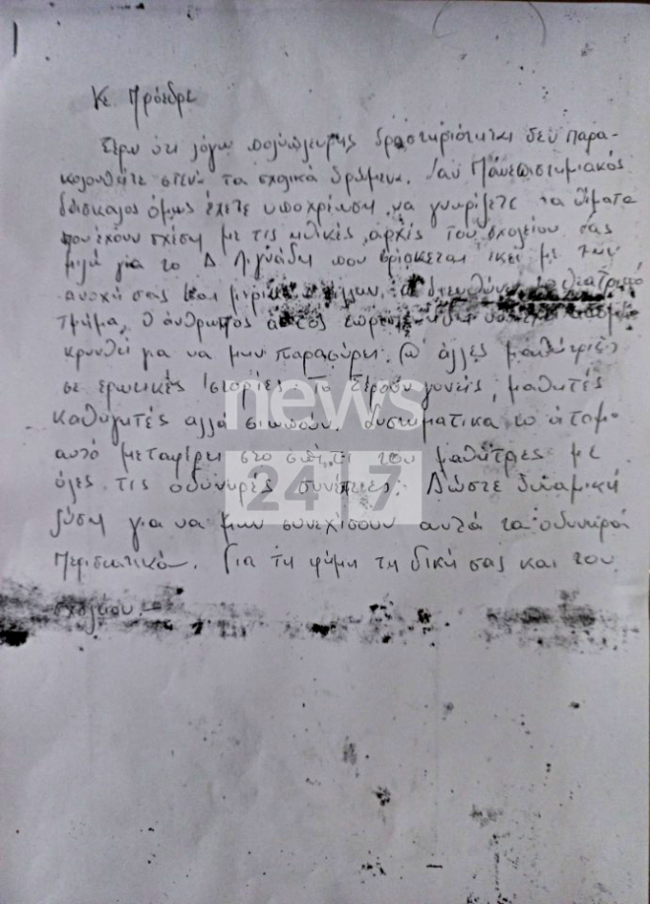 Κε Πρόεδρε
Ξέρω ότι λόγω πολύπλευρης δραστηριότητας δεν παρα-
κολουθείτε στενά τα σχολικά δρώμενα. Σαν Πανεπιστημιακός
δάσκαλος όμως έχετε υποχρέωση να γνωρίζετε τα θέματα
που έχουν σχέση με τις ηθικές αρχές του σχολείου σας
μιλώ για το Δ. Λιγνάδη που βρίσκεται εκεί με την
ανοχή σας και μερικών άλλων, να διευθύνει το θεατρικό
τμήμα, ο άνθρωπος αυτός
κρυνθεί για να μην παρασύρει άλλες μαθήτριες
σε ερωτικές ιστορίες. Το ξέρουν γονείς, μαθητές
καθηγητές αλλά σιωπούν. Συστηματικά το άτομο
αυτό μεταφέρει στο σπίτι του μαθήτριες με
όλες τις οδυνηρές συνέπειες. Δώστε δυναμική
λύση για να μην συνεχίσουν αυτά τα οδυνηρά
περιστατικά. Για τη φήμη τη δική σας και του
σχολείου
news
24 7